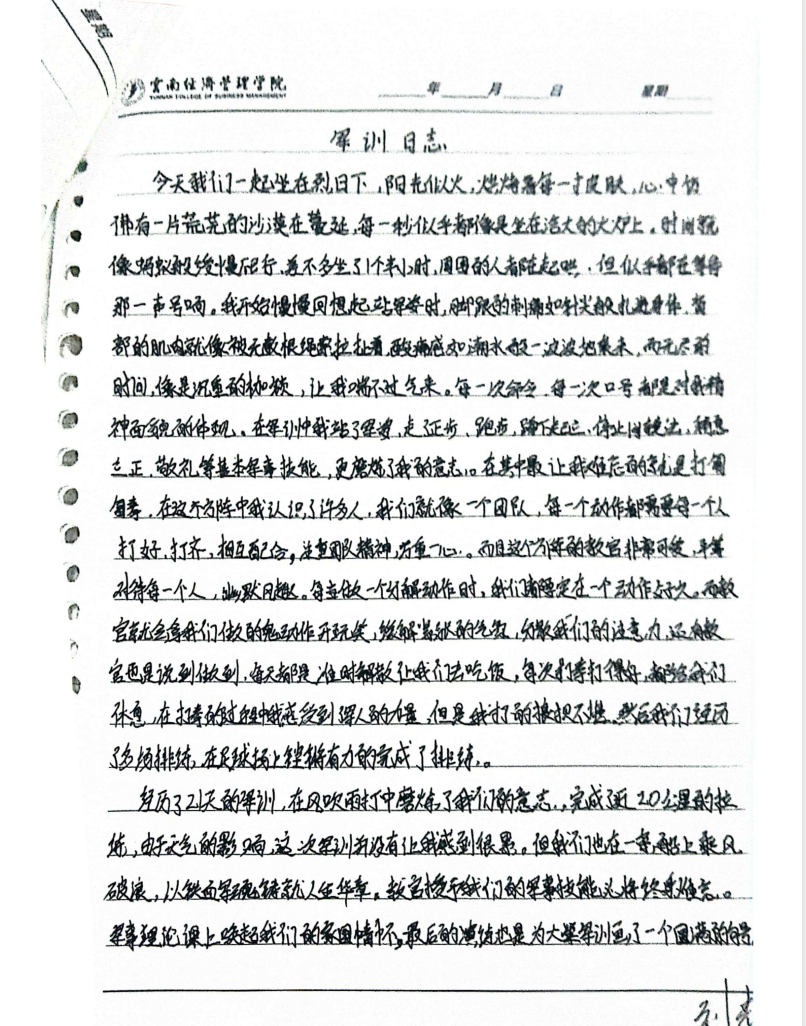 星期
雲南經濟管理学院
YUNNAN COLLEGE OF BUSINESS MANAGEMENT
年 月 日 星期
军训日志
今天我们一起坐在烈日下,阳光似火,燃烧着每一寸皮肤,心中仿
佛有一片荒芜的沙漠在蔓延,每一秒似乎都像是坐在浩大的火炉上。时间就
像蚂蚁般缓慢爬行,差不多坐了1个半小时,周围的人都在起哄,但似乎都在等待
那一声号响。我开始慢慢回想起站军姿时,脚跟的刺痛如针尖般扎进身体,背
部的肌肉就像被无数根绳索拉扯着,酸痛感如潮水般一波波地袭来,而无尽的
时间,像是沉重的枷锁,让我喘不过气来。每一次命令,每一次口号都是对我精
神面貌的体现。在军训中我站了军姿,走了正步、跑步,蹲下起立,停止间转法,稍息
立正,敬礼等基本军事技能,更磨炼了我的意志。在其中最让我难忘的就是打匍
匐拳,在这个方阵中我认识了许多人,我们就像一个团队,每一个动作都需要每一个人
打好,打齐,相互配合,注重团队精神,万众一心。而且这个方阵的教官非常可爱,平等
对待每一个人,幽默风趣。每当做一个分解动作时,我们都要定在一个动作好久。而教
官就会拿我们做的鬼动作开玩笑,缓解紧张的气氛,分散我们的注意力,还有教
官也是说到做到,每天都是准时解散让我们去吃饭,每次打拳打得好,都给我们
休息,在打拳的过程中我感受到军人的力量,但是我打的模棱不堪。然后我们经历
了多场排练,在足球场上铿锵有力的完成了排练。
经历了21天的军训,在风吹雨打中磨炼了我们的意志,完成了近20公里的拉
练,由于天气的影响,这次军训并没有让我感到很累。但我们也在一条船上乘风
破浪,以铁血军魂铸就人生华章。教官授予我们的军事技能必将终身难忘。
军事理论课上唤起我们的家国情怀,最后的演练也是为大学军训画了一个圆满的句号